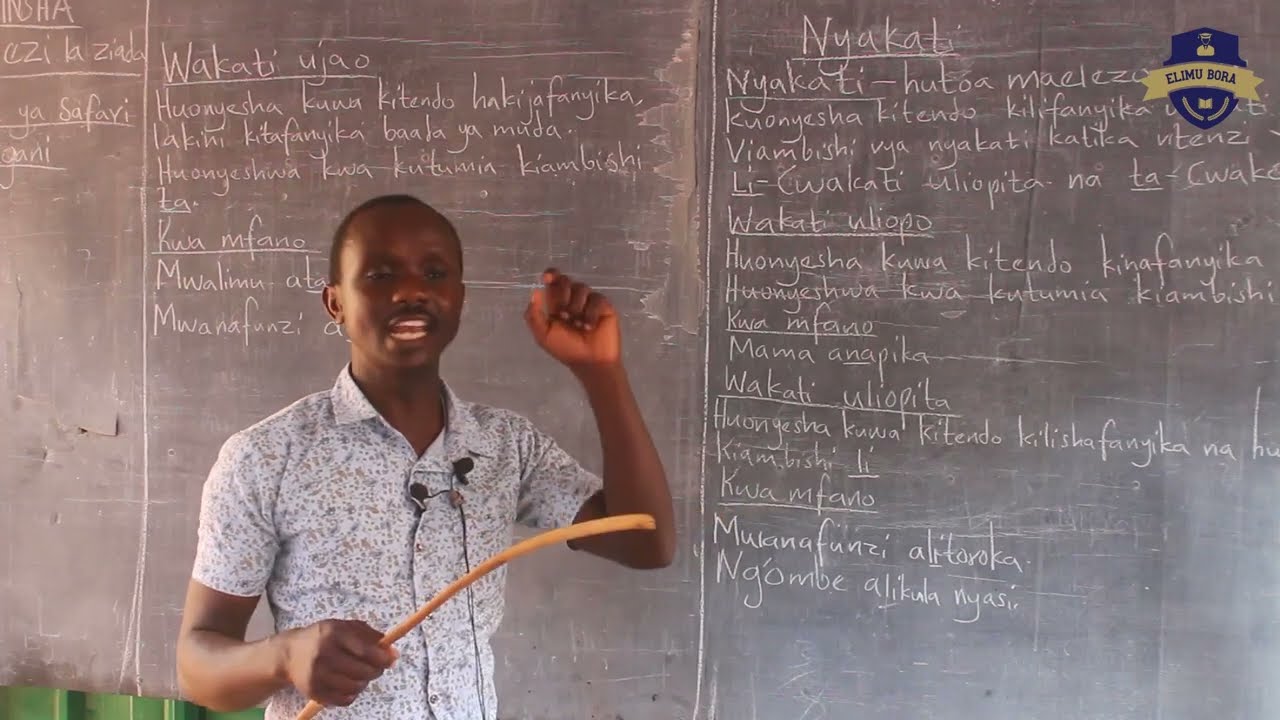 INSHA
ezi la ziada
ya Safari
gani
Wakati ujao
Huonyesha kuwa kitendo hakijafanyika,
lakini kitafanyika baada ya muda.
Huonyeshwa kwa kutumia kiambishi
ta.
Kwa mfano
Mwalimu ata
Mwanafunzi a
Nyakati
Nyakati - hutoa maelezo
kuonyesha kitendo kilifanyika
Viambishi vya nyakati katika ntenzi
Li-(wakati uliopita na ta-(wak
Wakati uliopo
Huonyesha kuwa kitendo kinafanyika
Huonyeshwa kwa kutumia kiambishi
Kwa mfano
Mama anapika
Wakati uliopita
Huonyesha kuwa kitendo kilishafanyika na hu
Kiambishi li
Kwa mfano
Mwanafunzi alitoroka.
Ng'ombe alikula nyasi.
ELIMU BORA